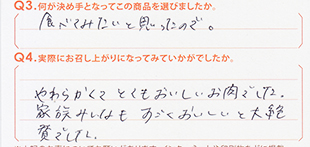 Q3.何が決め手となってこの商品を選びましたか。
食べてみたいと思ったので。
Q4.実際にお召し上がりになってみていかがでしたか。
やわらかくてとてもおいしいお肉でした。
家族みんなもすごくおいしいと大絶
賛でした。